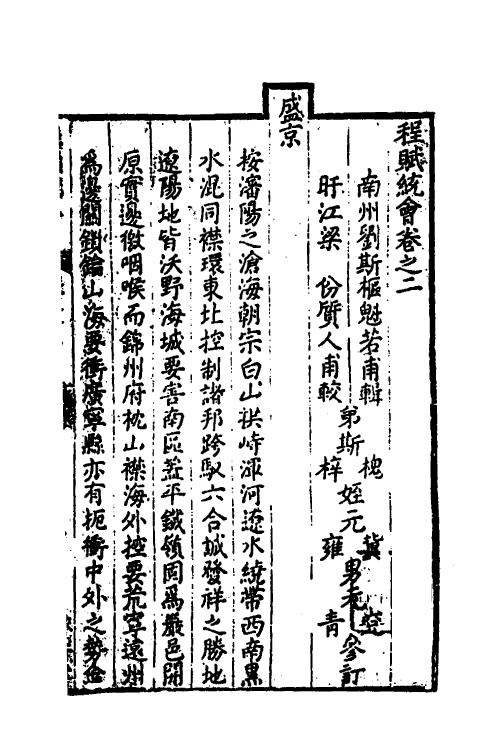 程賦統會卷之二
南州劉斯樞魁若甫輯
盱江梁　份質人甫較
弟斯　槐梓
姪元　冀雍
男本　青
參訂
盛京
按瀋陽之滄海朝宗白山拱峙渾河遼水繞帶西南黑
水混同襟環東北控制諸邦跨馭六合誠發祥之勝地
遼陽地皆沃野海城要害南區蓋平鐵嶺固爲嚴邑開
原實邊徼咽喉而錦州府枕山襟海外控要荒寧遠州
爲邊關鎖鑰山海要衝廣寧縣亦有扼衝中外之勢金